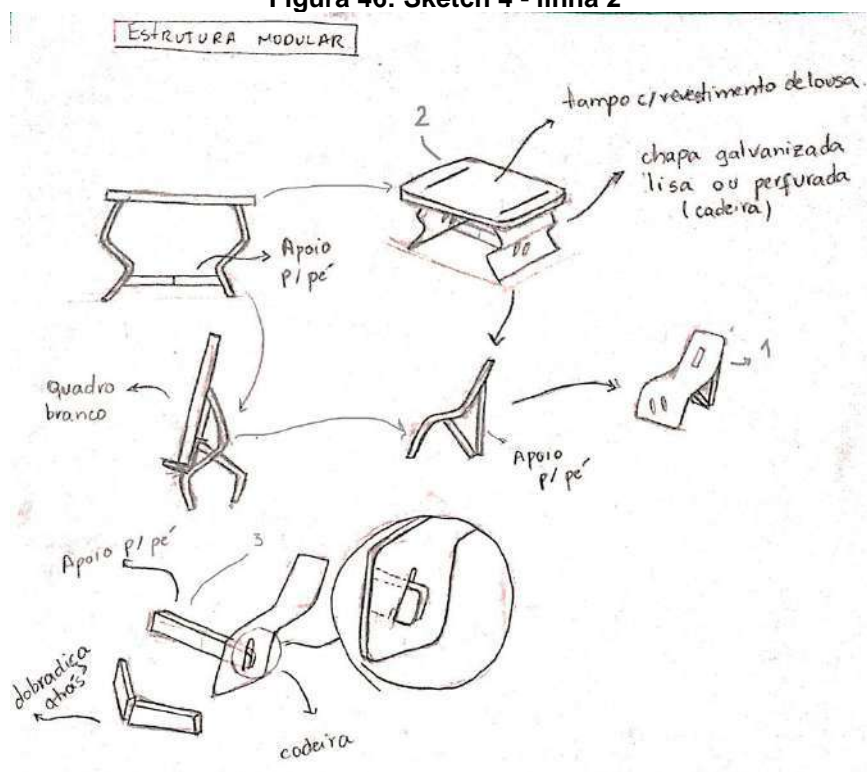 Figura 46: Sketch 4 - linha 2
ESTRUTURA MODULAR
tampo c/ revestimento de lousa.
2
chapa galvanizada
lisa ou perfurada
(cadeira)
Apoio
p/ pé
1
quadro
branco
Apoio
p/ pé
Apoio p/ pé
3
dobradiça
atrás
cadeira